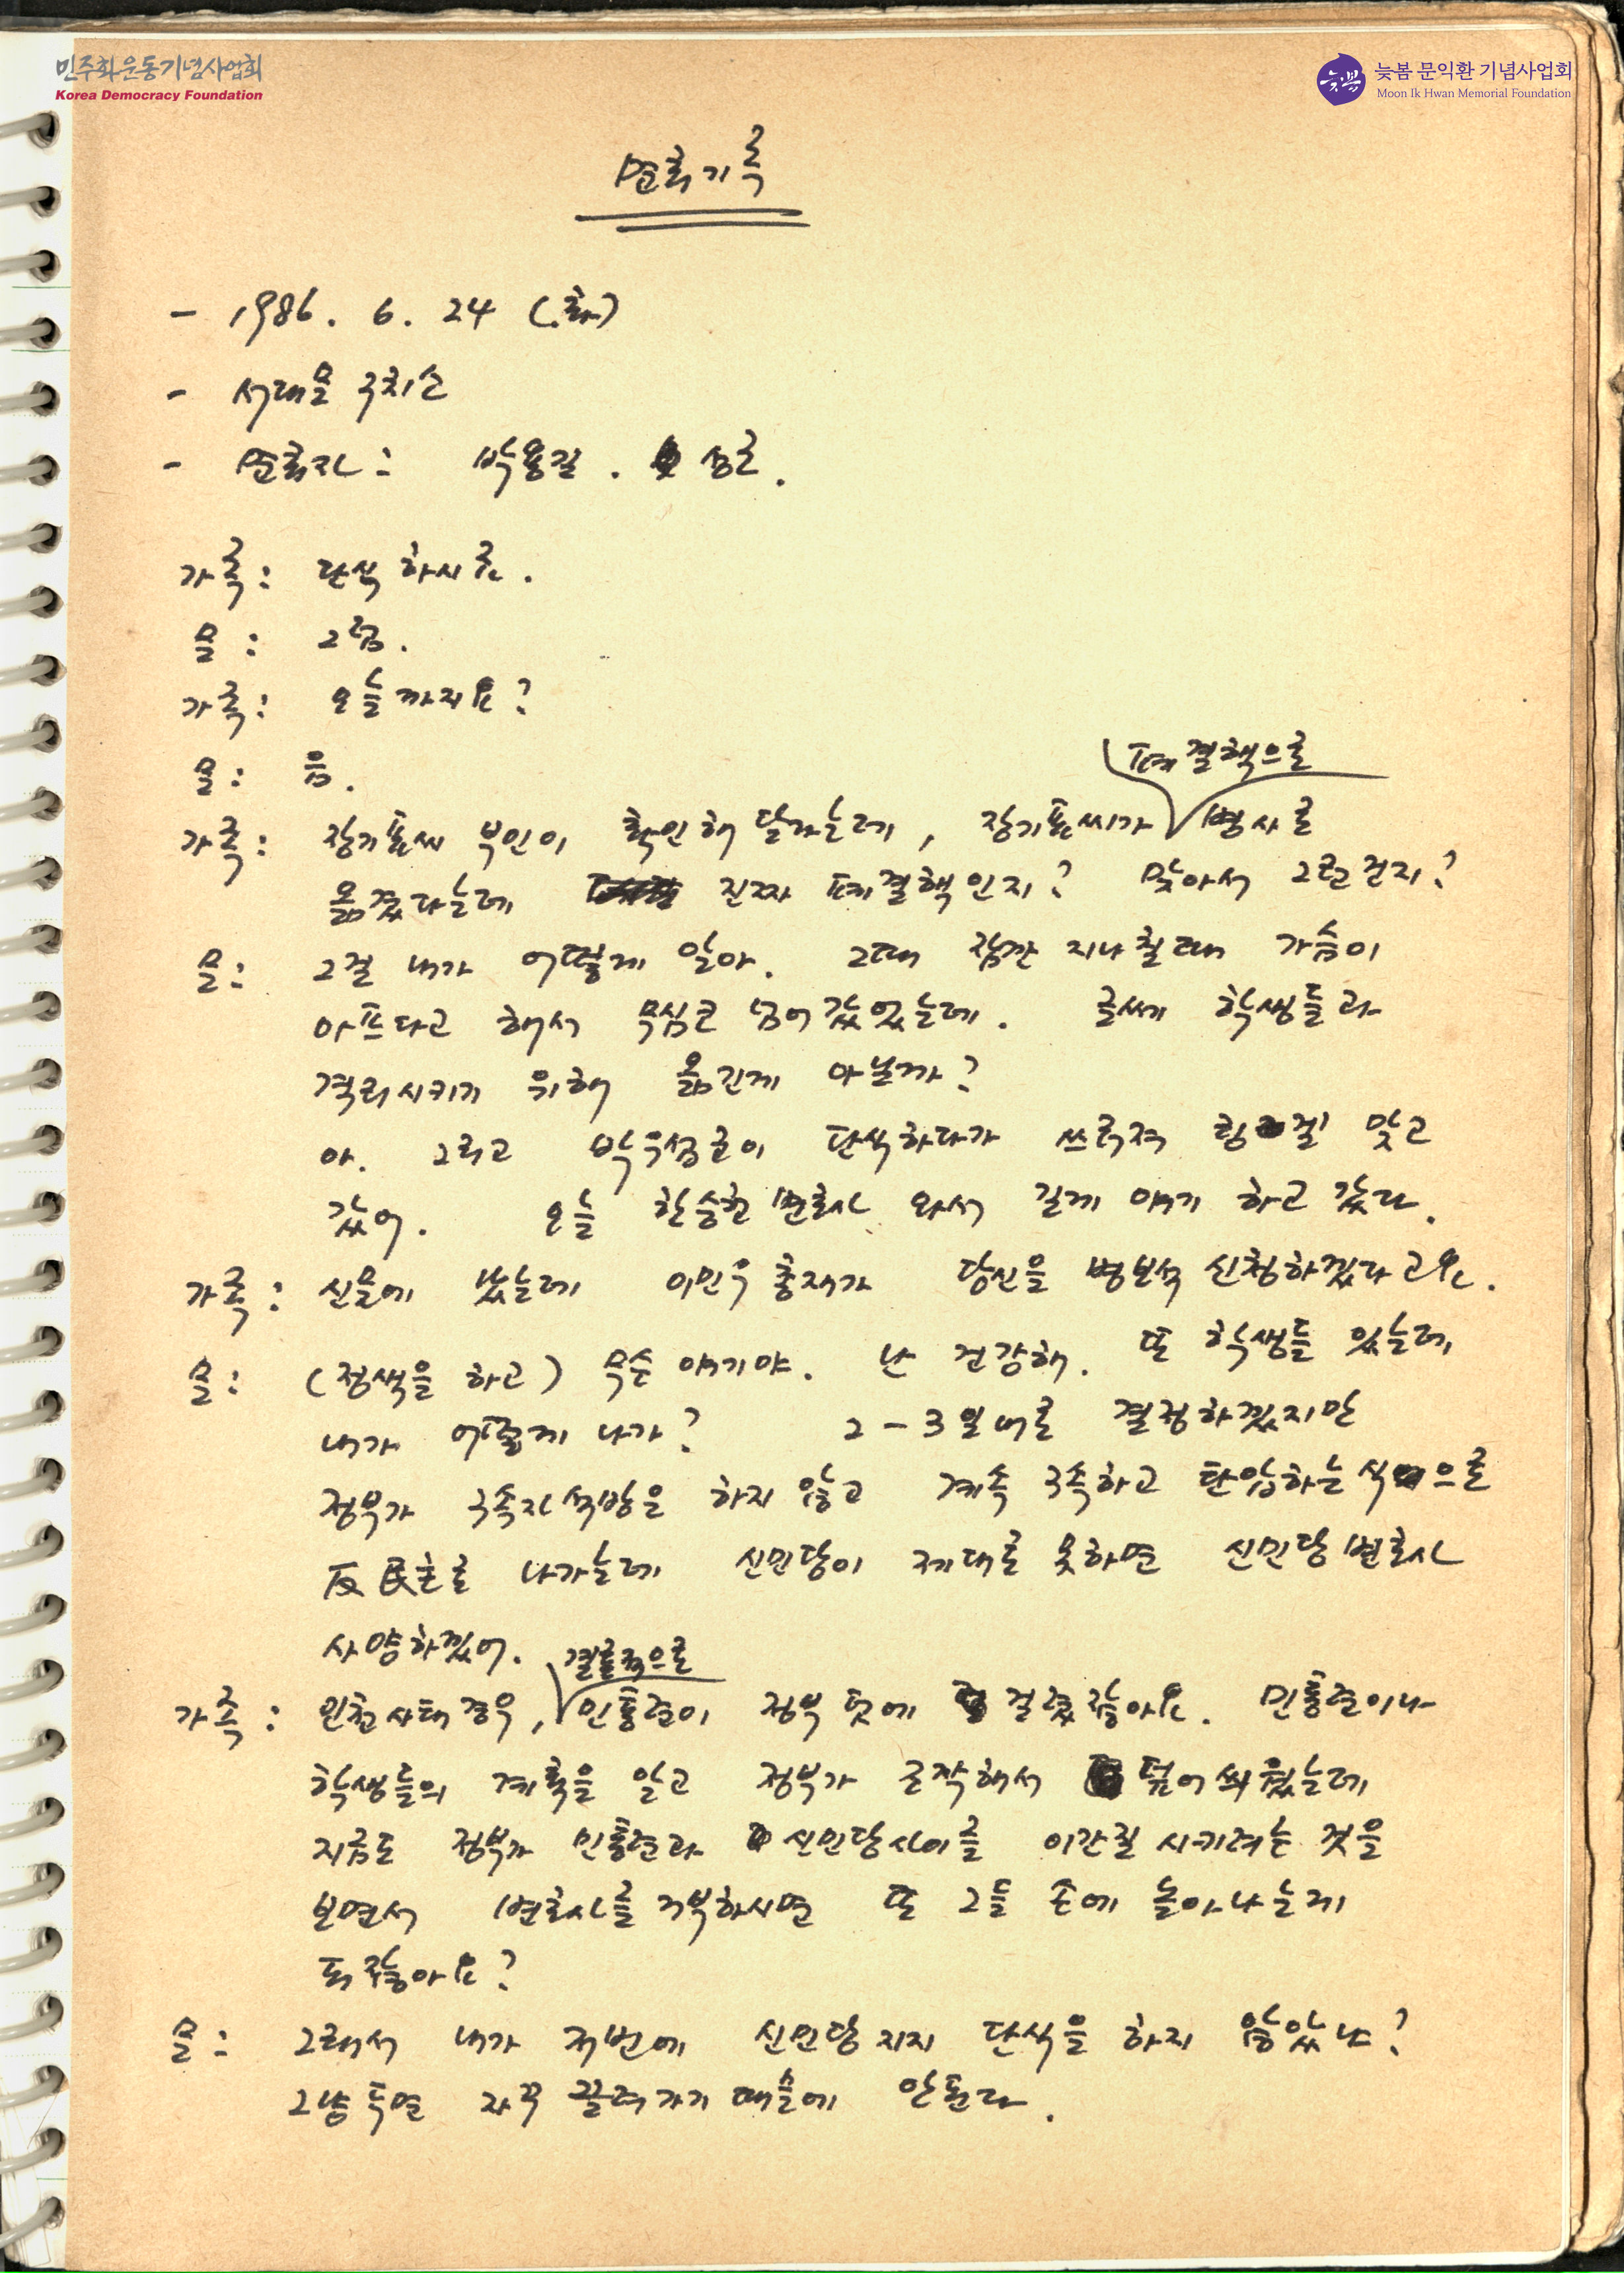 민주화운동기념사업회
Korea Democracy Foundation
늦봄 문익환 기념사업회
Moon Ik Hwan Memorial Foundation
면회기록
- 1986. 6. 24 (화)
- 서대문 구치소
- 면회자 : 박용길. 성근.
가족 : 단식 하시죠.
문 : 그럼.
가족 : 오늘까지요?
문 : 음.
폐결핵으로
가족 : 장기표씨 부인이 확인해 달라는데, 장기표씨가 병사로
옮겼다는데 진짜 폐결핵인지? 맞아서 그런건지?
문 : 그걸 내가 어떻게 알아. 그때 잠깐 지나칠때 가슴이
아프다고 해서 무심코 넘어갔었는데. 글쎄 학생들과
격리시키기 위해 옮긴게 아닐까?
아. 그리고 박우섭군이 단식하다가 쓰러져 링겔 맞고
갔어. 오늘 한승헌 변호사 와서 길게 얘기 하고 갔다.
가족 : 신문에 났는데 이민우 총재가 당신을 병보석 신청하겠다고요.
문 : (정색을 하고) 무슨 얘기야. 난 건강해. 또 학생들 있는데,
내가 어떻게 나가? 2-3일내로 결정하겠지만
정부가 구속자석방을 하지 않고 계속 구속하고 탄압하는식으로
反民主로 나가는데 신민당이 제대로 못하면 신민당 변호사
사양하겠어.
결론적으로
가족 : 인천사태 경우, 민통련이 정부 덫에 걸렸잖아요. 민통련이나
학생들의 계획을 알고 정부가 조작해서 덮어씌웠는데
지금도 정부가 민통련과 신민당사이를 이간질 시키려는 것을
보면서 변호사를 거부하시면 또 그들 손에 놀아나는게
되잖아요?
문 : 그래서 내가 저번에 신민당지지 단식을 하지 않았나?
그냥 두면 자꾸 끌려가기 때문에 안된다.